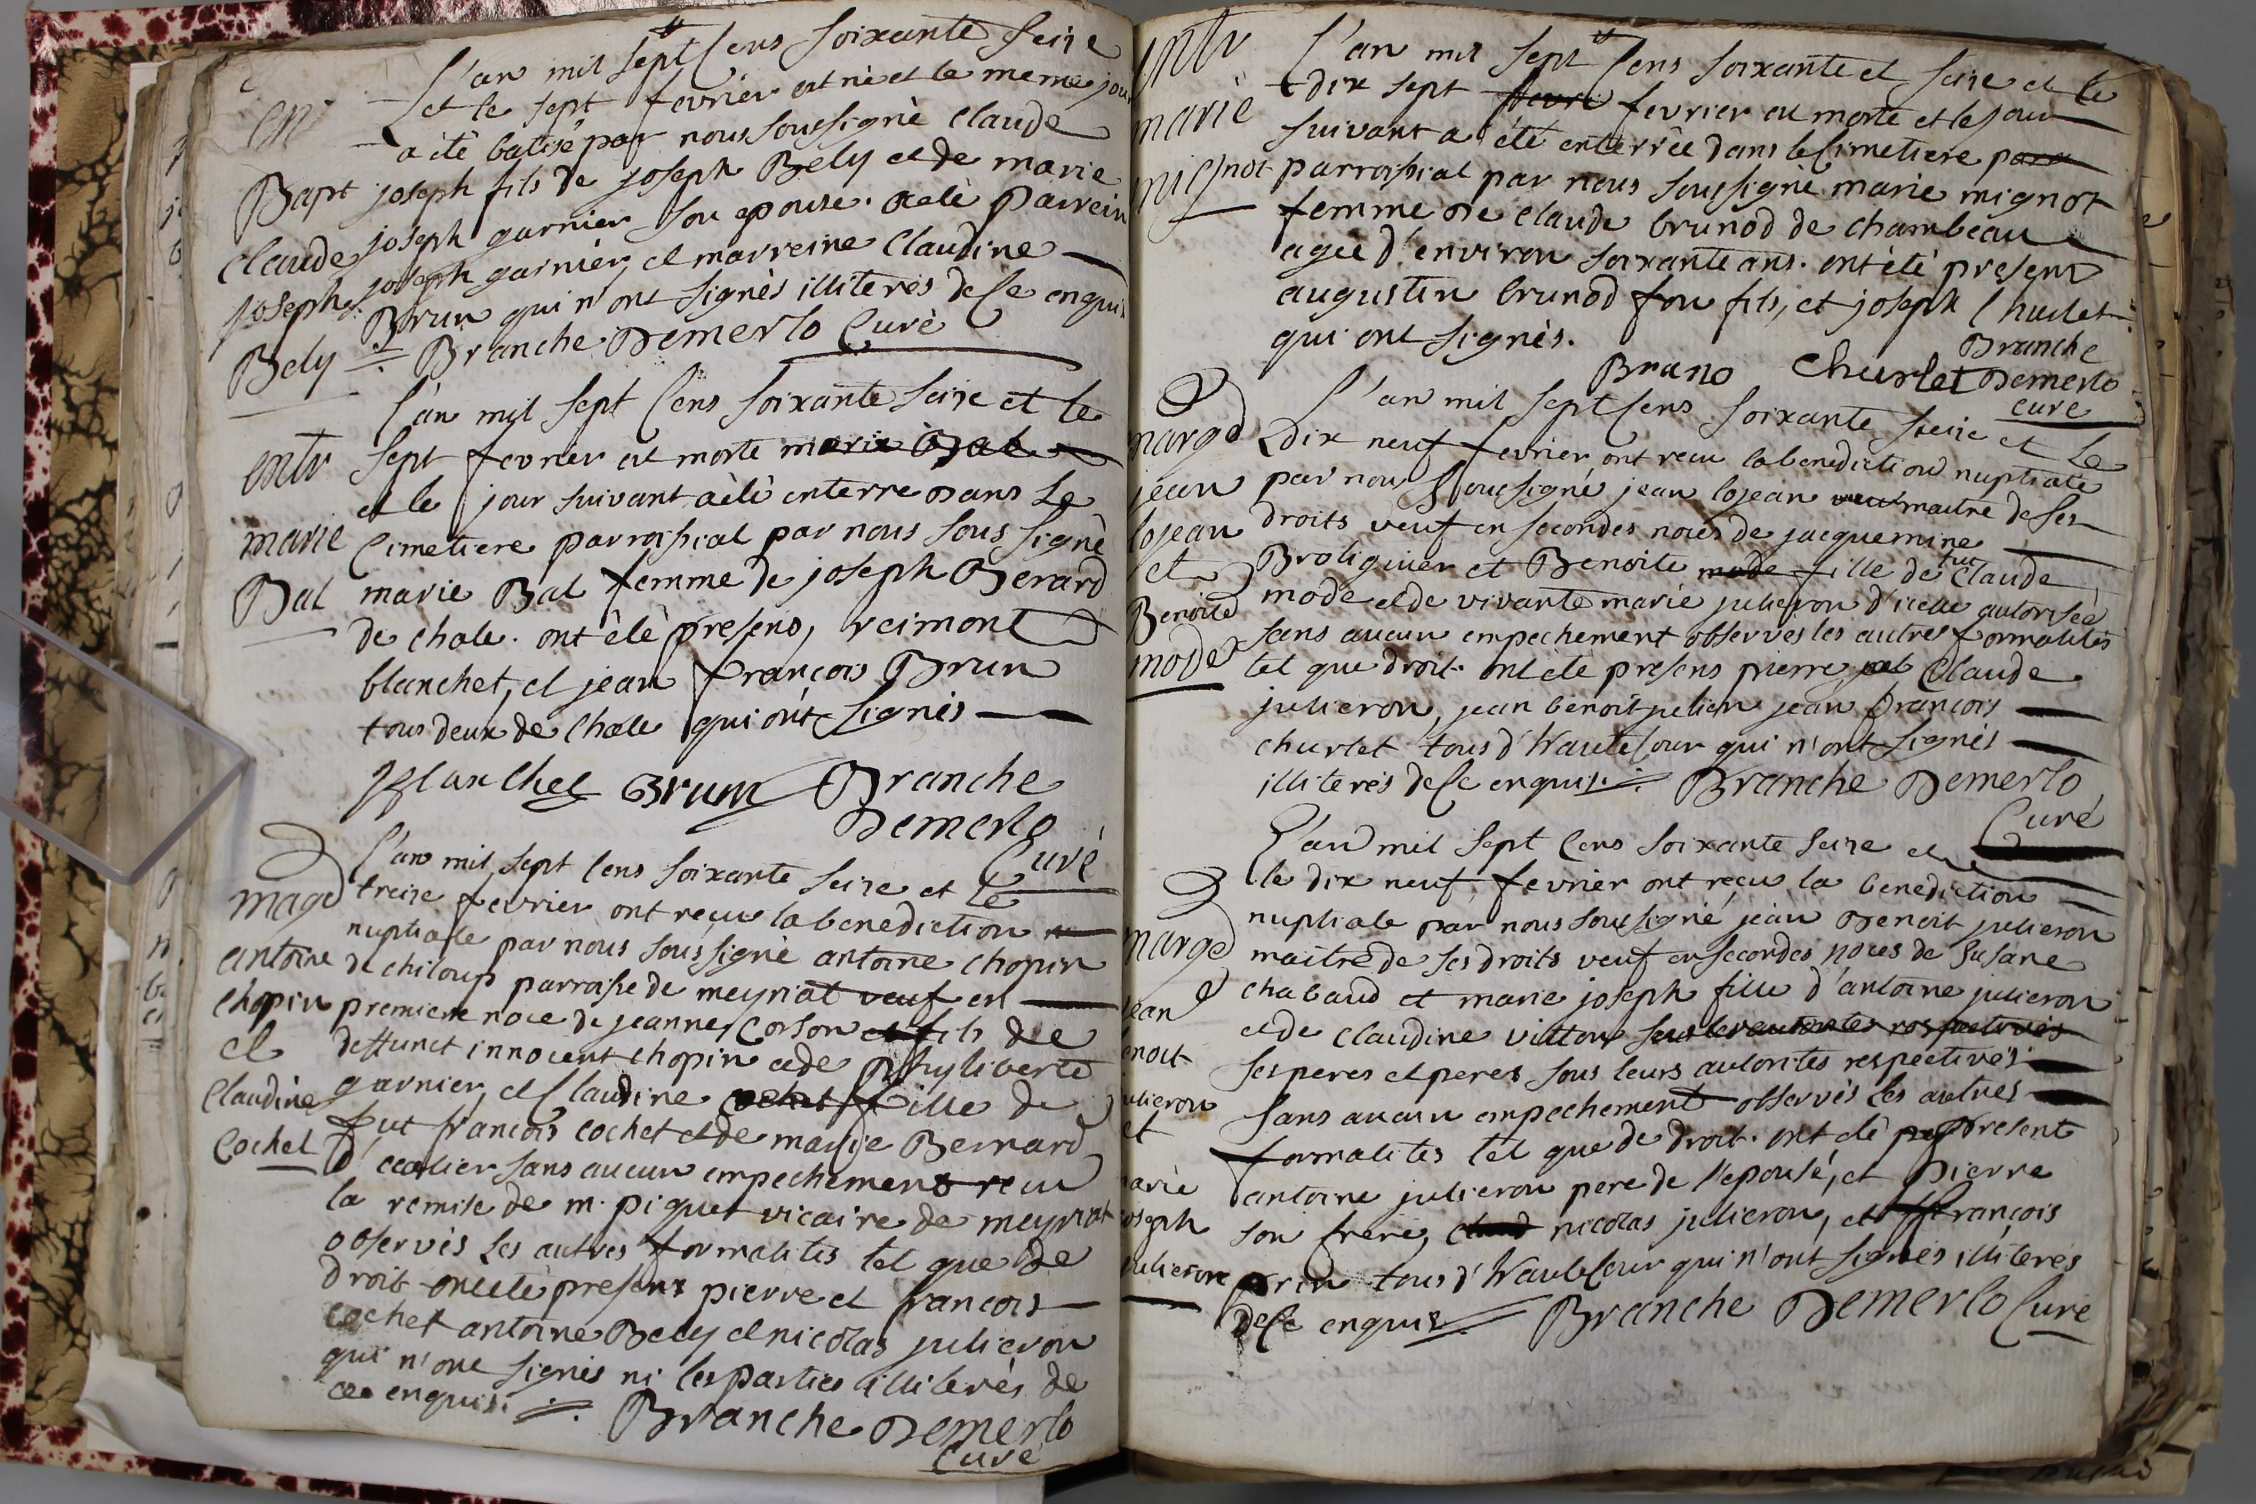 L'an mil sept Cens soixante seize
et le sept fevrier est né et le meme jour
a été batisé par nous soussigné claude
Bapt joseph fils de joseph Bely et de marie
claude joseph garnier son epouse. a été parrein
joseph joseph garnier, et marreine Claudine
Brun qui n'ont signés illiterés de Ce enquis
Bely Branche Demerlo Curé
L'an mil sept Cens soixante seize et le
entr sept fevrier est morte marie Bal
et le jour suivant a été enterre dans Le
marie Cimetiere parroissial par nous sous signé
Bal marie Bal femme de joseph Berard
de chale. ont été presens, reimont
blanchet, et jean françois Brun
tous deux de Chale qui ont signés
Blanchet Brun Branche
Demerlo
Curé
L'an mil sept Cens soixante seize et le
mag treize fevrier ont reçu la benediction
nuptiale par nous soussigné antoine chopin
antoine de chiloup parroisse de meyriat veuf en
chopin premiere noce de jeanne Corson et fils de
et deffunct innocent chopin et de phyliberte
Claudine garnier, et Claudine cochet fille de
Cochet fut francois cochet et de marie Bernard
d' sans aucun empechement reçu
la remise de m. piquet vicaire de meyriat
observés Les autres formalités tel que de
droit ont été presens pierre et francois
cochet antoine Bely et nicolas julieron
qui n'ont signés ni les parties illiterés de
ce enquis. Branche Demerlo
Curé
L'an mil sept Cens soixante et seize et le
marie dix sept fevri fevrier est morte et le jour
suivant a été enterrée dans le Cimetiere paro
mignot parroissial par nous soussigné marie mignot
femme de claude brunod de chambeau
agée d'environ soixante ans. ont été presens
augustin brunod son fils, et joseph Churlet
qui ont signés. Branche
Bruno Churlet Demerlo
curé
L'an mil sept Cens soixante seize et Le
Dix neuf fevrier ont recu la benediction nuptiale
jean par nous soussigné jean lojean maitre de ses
lojean droits veuf en secondes noces de jacquemine
et Broliquier et Benoite mode fille de fut Claude
Benoite mode et de vivante marie julieron d'icelle autorisée
mode sans aucun empechement observés les autres formalités
tel que droit. ont été presens pierre Claude
julieron, jean benoit julieron jean françois
churlet tous d'hauteCour qui n'ont signés
illiterés de Ce enquis. Branche Demerlo
Curé
L'an mil sept Cens soixante seize et
le dix neuf fevrier ont reçu la benediction
nuptiale par nous soussigné jean Benoit julieron
maitre de ses droits veuf en secondes noces de susane
chabaud et marie joseph fille d'antoine julieron
jean et de claudine vitton sous leurs autorités respectives
enoit ses peres et peres sous leurs autorités respectives
ulieron sans aucun empechement observés les autres
et formalités tel que de droit. ont été present
arie antoine julieron pere de l'epouse, et pierre
oseph son frere, nicolas julieron, et françois
ulieron tous d'hauteCour qui n'ont signés illiterés
de Ce enquis Branche Demerlo Curé